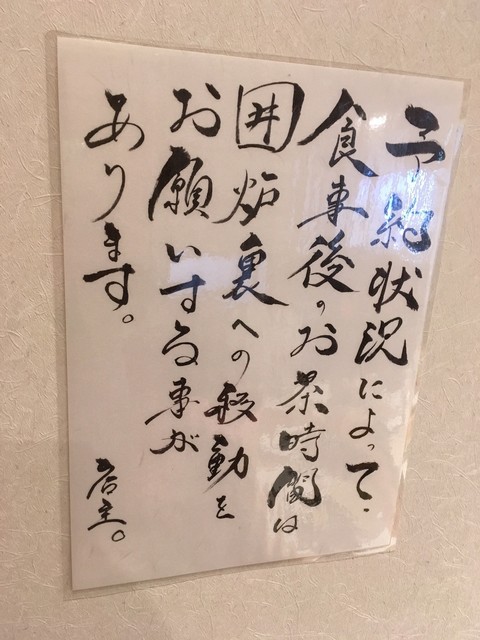 予約状況によって、
食事後のお茶時間は
囲炉裏への移動を
お願いする事が
あります。
店主。